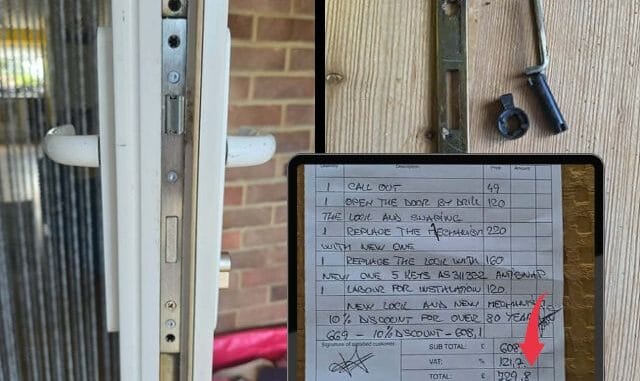 Quantity Description Price Amount
1 CALL OUT 49
1 OPEN THE DOOR BY DRILL 120
THE LOCK AND SNAPING
1 REPLACE THE MECHANISM 220
WITH NEW ONE
1 REPLACE THE LOCK WITH 160
NEW ONE 5 KEYS AS 311332 ANTISNAP
1 LABOUR FOR INSTALATION 120
NEW LOCK AND NEW MECHANISM
10% DISCOUNT FOR OVER 80 YEAR
669 - 10% DISCOUNT - 608,1
Signature of satisfied customer
SUB TOTAL: £ 608
VAT: % 121,
TOTAL: £ 729,8